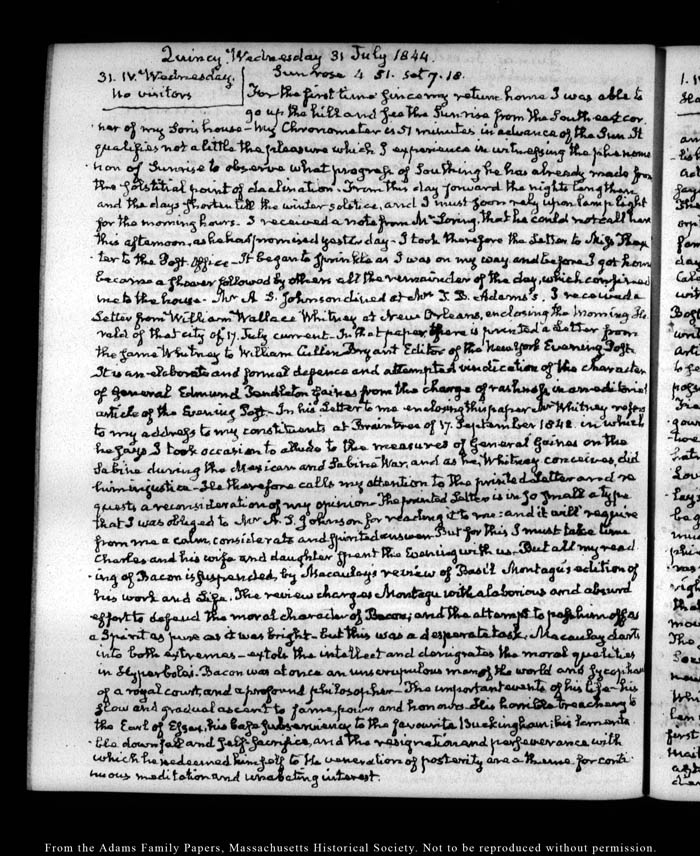 Quincy Wednesday 31 July 1844.
31. IV. Wednesday. Sun rose 4 51. set 7. 18.
No visitors
For the first time since my return home I was able to
go up the hill and see the Sunrise from the South east cor-
ner of my Son's house - My Chronometer is 57 minutes in advance of the Sun. It
qualifies not a little the pleasure which I experience in witnessing the phenome-
non of Sunrise to observe what progress of Southing he has already made from
the solstitial point of declination. From this day forward the nights lengthen
and the days shorten till the winter solstice, and I must soon rely upon lamp light
for the morning hours. I received a note from Mr Loring, that he could not call here
this afternoon, as he had promised yesterday - I took therefore the Letter to Miss Thax-
ter to the Post Office - It began to sprinkle as I was on my way and before I got home
became a shower followed by others all the remainder of the day, which confined
me to the house. Mr A. S. Johnson dined at Mrs J. B. Adams's. I received a
Letter from William Wallace Whitney at New Orleans, enclosing the Morning He-
rald of that city of 17. July current. In that paper, there is printed a Letter from
the same Whitney to William Cullen Bryant Editor of the New York Evening Post.
It is an elaborate and formal defence and attempted vindication of the character
of General Edmund Pendleton Gaines from the charge of rashness in an editorial
article of the Evening Post - In his Letter to me enclosing this paper Mr Whitney refers
to my address to my constituents at Braintree of 17. September 1842. in which
he says I took occasion to allude to the measures of General Gaines on the
Sabine during the Mexican and Sabine War, and as he, Whitney conceives, did
him injustice - He therefore calls my attention to the printed Letter and re
quests a reconsideration of my opinion. The printed Letter is in so small a type
that I was obliged to Mr A. S. Johnson for reading it to me: and it will require
from me a calm, considerate and answer. But for this I must take time
Charles and his wife and daughter spent the Evening with us. But all my read-
ing of Bacon is suspended, by Macaulay's review of Basil Montagu's edition of
his work and Life. The review charges Montagu with a laborious and absurd
effort to defend the moral character of Bacon; and the attempt to pass him off as
a Spirit as pure as it was bright - but this was a desperate task. Macaulay darts
into both extremes - extols the intellect and denigrates the moral qualities
in Hyperbolas. Bacon was at once an unscrupulous man of the world and sycophant
of a royal court, and a profound philosopher - The important events of his life - his
slow and gradual ascent to fame, power and honours. His horrible treachery to
the Earl of Essex, his base subserviency to the favourite Buckingham; his lamenta-
ble downfall and self-sacrifice, and the resignation and perseverance with
which he redeemed himself to the veneration of posterity are a theme for conti-
nuous meditation and unabating interest.
From the Adams Family Papers, Massachusetts Historical Society. Not to be reproduced without permission.